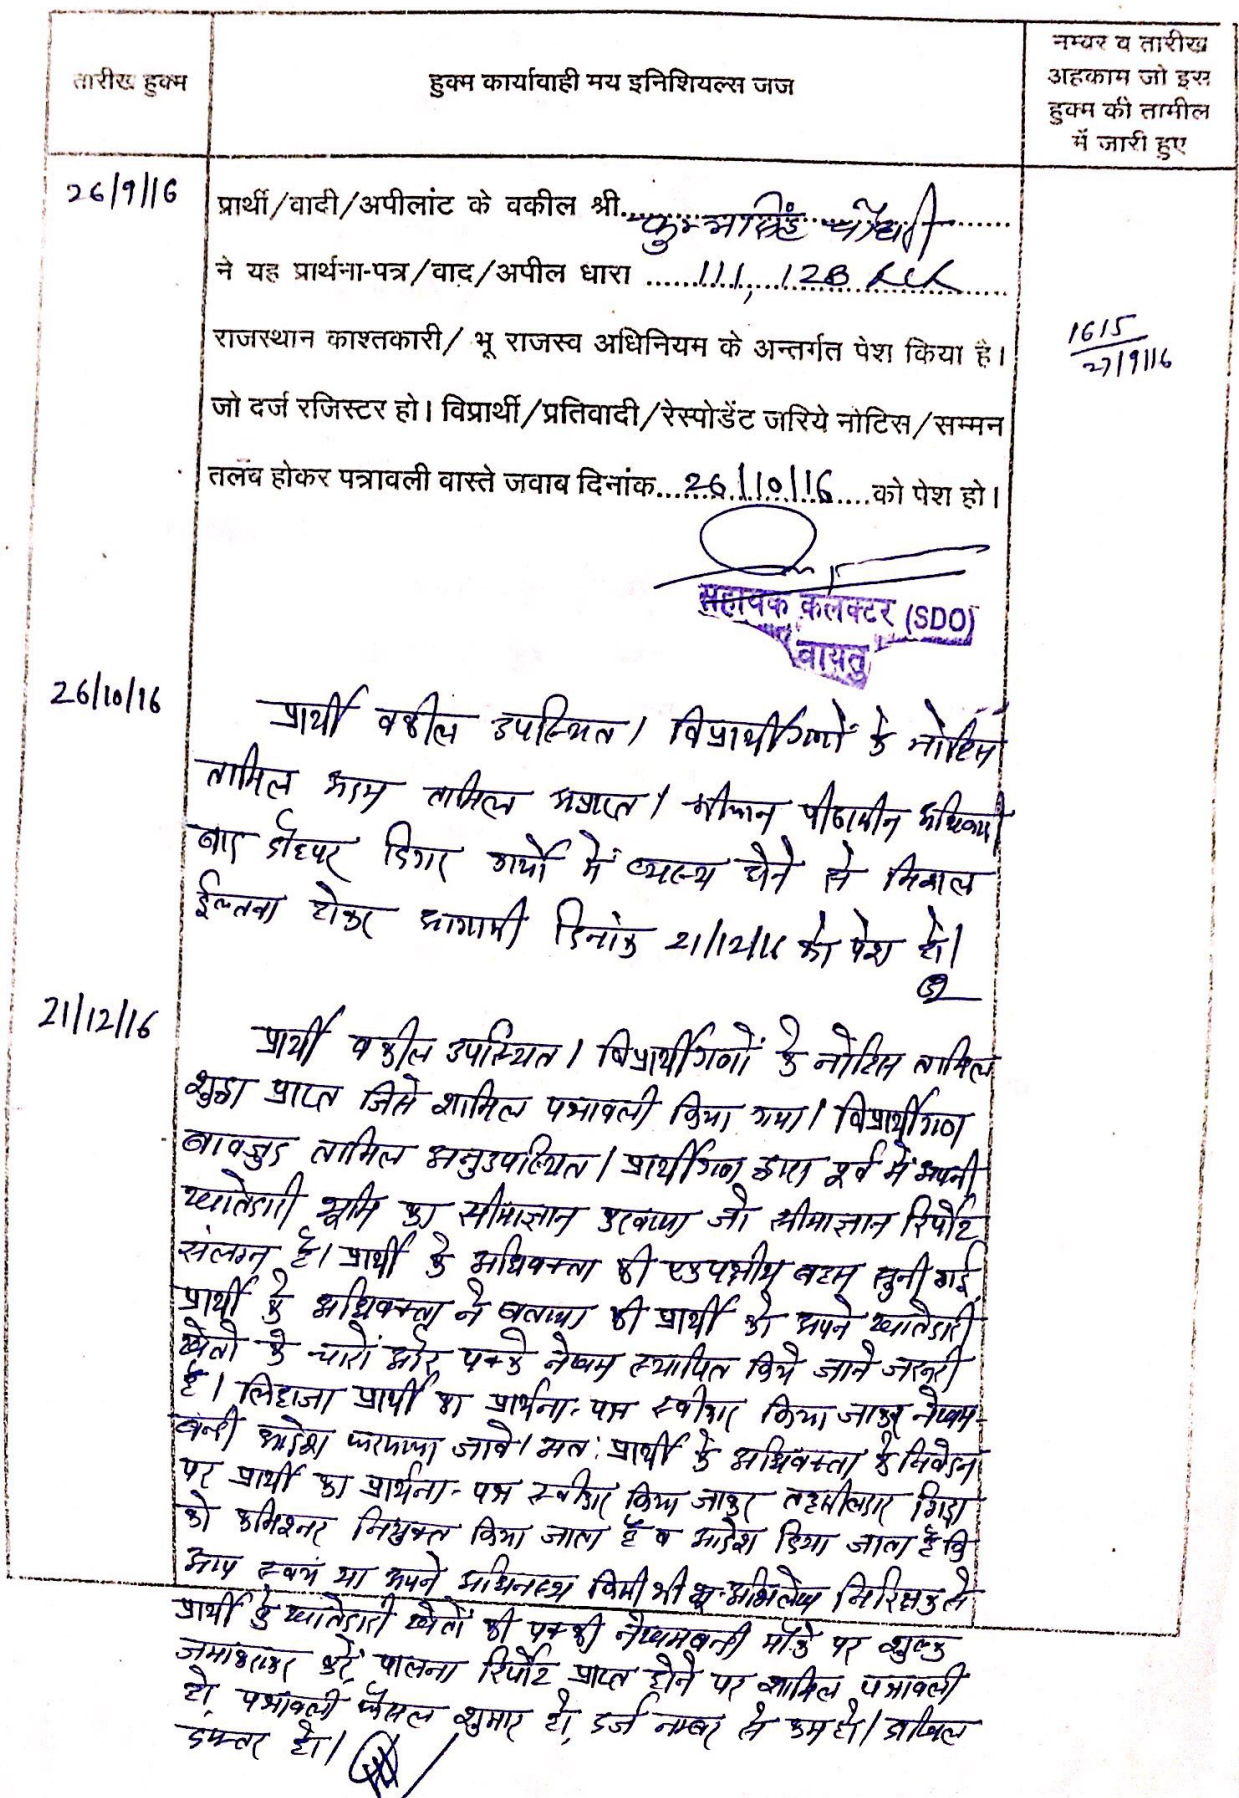 तारीख हुक्म
हुक्म कार्यावाही मय इनिशियल्स जज
नम्बर व तारीख
अहकाम जो इस
हुक्म की तामील
में जारी हुए
26/9/16
प्रार्थी/वादी/अपीलांट के वकील श्री.......... चौधरी
ने यह प्रार्थना-पत्र/वाद/अपील धारा ......111, 128
राजस्थान काश्तकारी/ भू राजस्व अधिनियम के अन्तर्गत पेश किया है।
1615
27/9/16
जो दर्ज रजिस्टर हो। विप्रार्थी/प्रतिवादी/रेस्पोडेंट जरिये नोटिस/सम्मन
तलब होकर पत्रावली वास्ते जवाब दिनांक....26/10/16....को पेश हो।
सहायक कलक्टर (SDO)
बायतु
26/10/16
प्रार्थी वकील उपस्थित। विप्रार्थीगणों के नोटिस
तामिल अदम तामिल अप्राप्त। श्रीमान पीठासीन अधिकारी
कार्यो में व्यस्थ होने से मिशल
ईल्तवा होकर आगामी दिनांक 21/12/16 को पेश हो।
21/12/16
प्रार्थी वकील उपस्थित। विप्रार्थीगणों के नोटिस तामिल
शुदा प्राप्त जिसे शामिल पत्रावली किया गया। विप्रार्थीगण
बावजुद तामिल अनुउपस्थित। प्रार्थीगण द्वारा पूर्व में अपनी
खातेदारी भूमि का सीमाज्ञान करवाया जो सीमाज्ञान रिर्पोट
संलग्न है। प्रार्थी के अधिवक्ता की एकपक्षीय बहस सुनी गई
प्रार्थी के अधिवक्ता ने बताया की प्रार्थी को अपने खातेदारी
खेतो के चारों और पक्के नेखम स्थापित किये जाने जरूरी
है। लिहाजा प्रार्थी का प्रार्थना-पत्र स्वीकार किया जाकर नेखम-
बन्दी आदेश फरमाया जावे। अत: प्रार्थी के अधिवक्ता के निवेदन
पर प्रार्थी का प्रार्थना-पत्र स्वीकार किया जाकर तहसीलदार गिड़ा
को कमिश्नर नियुक्त किया जाता है व आदेश दिया जाता है कि
आप स्वयं या अपने अधिनस्थ किसी भी भू-अभिलेख निरिक्षक से
प्रार्थी के खातेदारी खेतों की पक्की नेखमबन्दी मौके पर शुल्क
जमाकराकर करें, पालना रिर्पोट प्राप्त होने पर शामिल पत्रावली
हो, पत्रावली फैसल शुमार हो, दर्ज नम्बर से कम हो। दाखिल
दफ्तर हो।